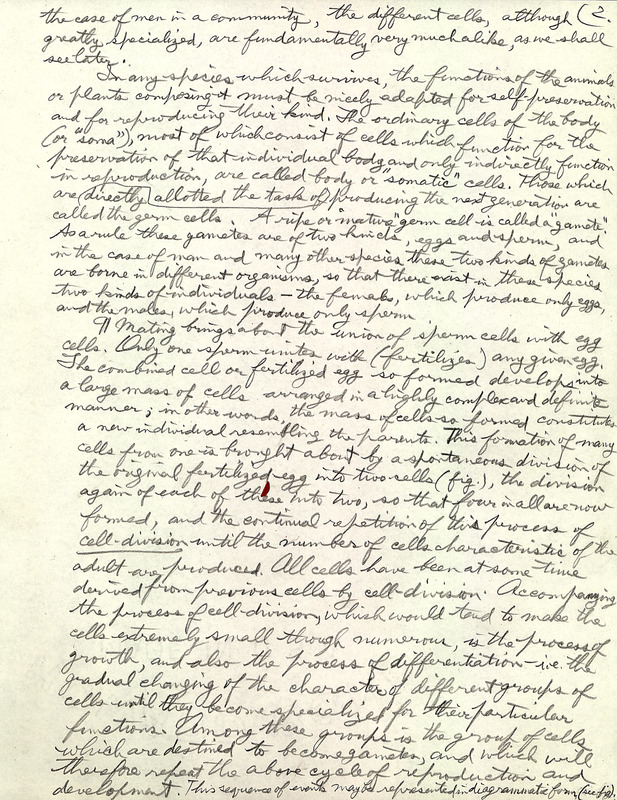 the case of men in a community, the different cells, although (2.
greatly specialized, are fundamentally very much alike, as we shall
see later.
In any species which survives, the functions of the animals
or plants composing it must be nicely adapted for self-preservation
and for reproducing their kind. The ordinary cells of the body
(or "soma"), most of which consist of cells which function for the
preservation of that individual body and only indirectly function
in reproduction, are called body or "somatic" cells. Those which
are directly allotted the task of producing the next generation are
called the germ cells. A ripe or "mature" germ cell is called a "gamete".
As a rule these gametes are of two kinds, eggs and sperm, and
in the case of man and many other species these two kinds of gametes
are borne in different organisms, so that there exist in these species
two kinds of individuals – the females, which produce only eggs,
and the males, which produce only sperm.
¶ Mating brings about the union of sperm cells with egg
cells. Only one sperm unites with (fertilizes) any given egg.
The combined cell or fertilized egg so formed develops into
a large mass of cells arranged in a highly complex and definite
manner; in other words, the mass of cells so formed constitutes
a new individual resembling the parents. This formation of many
cells from one is brought about by a spontaneous division of
the original fertilized egg into two cells (fig.), the division
again of each of these into two, so that four in all are now
formed, and the continual repetition of this process of
cell-division until the number of cells characteristic of the
adult are produced. All cells have been at some time
derived from previous cells by cell-division. Accompanying
the process of cell-division, which would tend to make the
cells extremely small though numerous, is the process of
growth, and also the process of differentiation – i.e. the
gradual changing of the character of different groups of
cells until they become specialized for their particular
functions. Among these groups is the group of cells
which are destined to become gametes, and which will
therefore repeat the above cycle of reproduction and
development. This sequence of events may be represented in diagrammatic form (see fig).